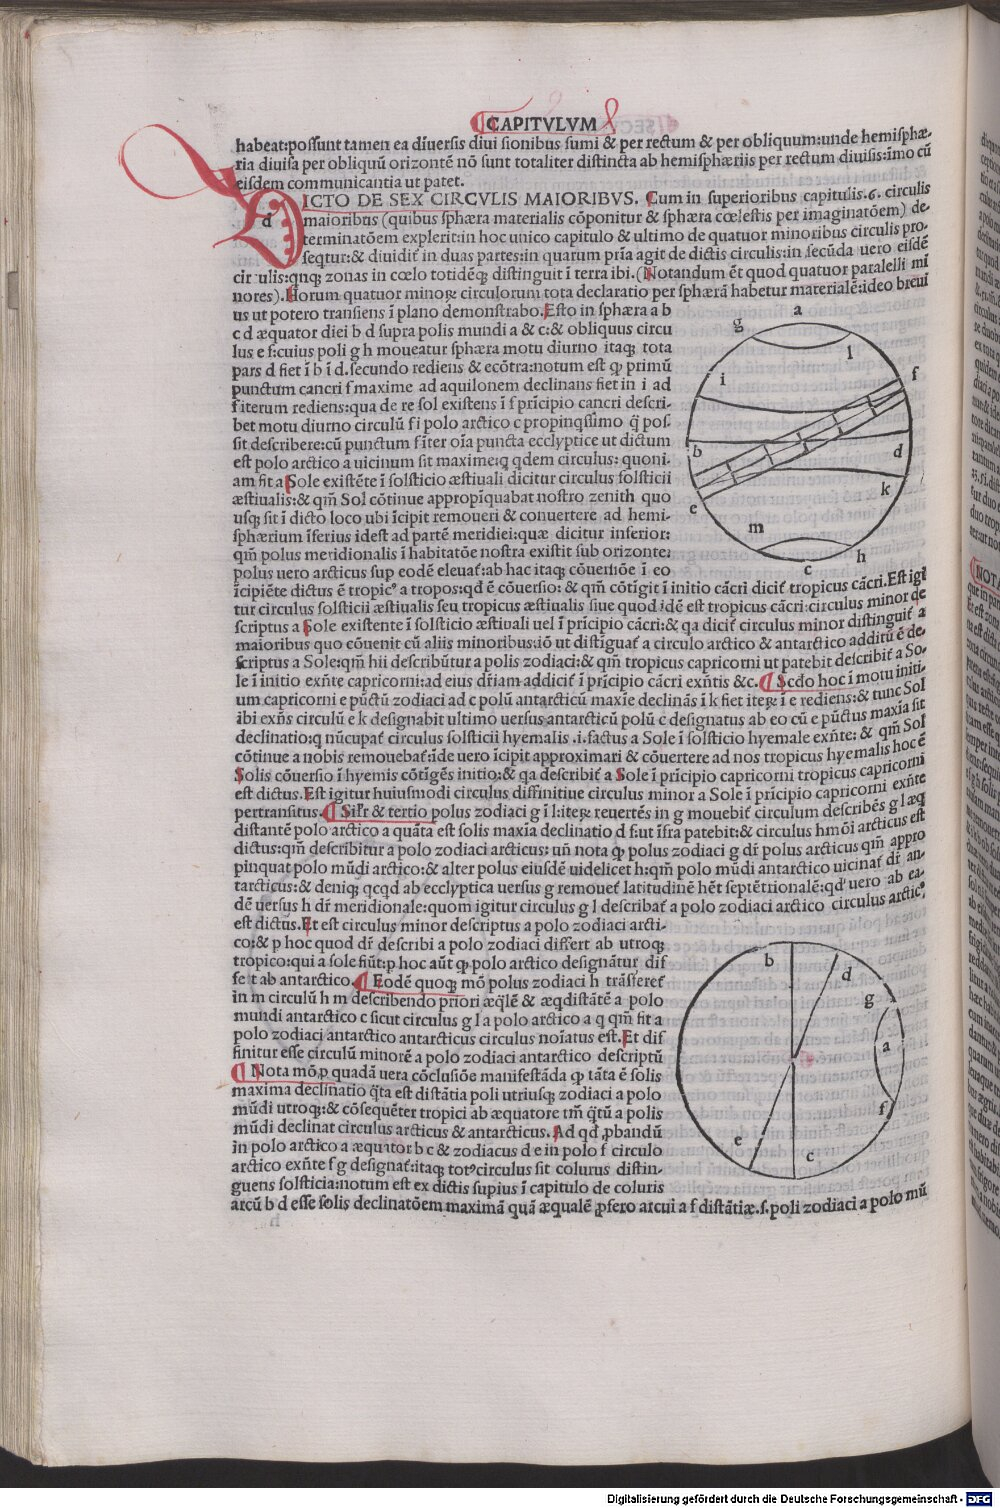 CAPITVLVM
habeat:possunt tamen ea diuersis diui sionibus sumi & per rectum & per obliquum:unde hemisphæ-
ria diuisa per obliquū orizontē nō sunt totaliter distincta ab hemisphæriis per rectum diuisis:imo cū
eisdem communicantia ut patet.
d ICTO DE SEX CIRCVLIS MAIORIBVS. Cum in superioribus capitulis.6. circulis
maioribus (quibus sphæra materialis cōponitur & sphæra cœlestis per imaginatōem) de-
terminatōem explerit:in hoc unico capitulo & ultimo de quatuor minoribus circulis pro-
seqtur:& diuidit̄ in duas partes:in quarum prīa agit de dictis circulis:in secūda uero eisdē
cir ulis:qnqꝫ zonas in cœlo totidēqꝫ distinguit ī terra ibi. (Notandum ēt quod quatuor paralelli mī
nores). Horum quatuor minoꝝ circulorum tota declaratio per sphærā habetur materialē:ideo breui
us ut potero transiens ī plano demonstrabo. Esto in sphæra a b
c d æquator diei b d supra polis mundi a & c:& obliquus circu
lus e f:cuius poli g h moueatur sphæra motu diurno itaqꝫ tota
pars d fiet ī b ī d.secundo rediens & ecōtra:notum est ꝙ primū
punctum cancri f maxime ad aquilonem declinans fiet in i ad
f iterum rediens:qua de re sol existens ī f prīcipio cancri descri-
bet motu diurno circulū f i polo arctico c propinqssimo q̄ pos-
sit describere:cū punctum f īter oīa puncta ecclyptice ut dictum
est polo arctico a uicinum sit maxime:q qdem circulus: quoni-
am fit a Sole existēte ī solsticio æstiuali dicitur circulus solsticii
æstiualis:& qm̄ Sol cōtinue appropīquabat nostro zenith quo
usqꝫ sit ī dicto loco ubi īcipit remoueri & conuertere ad hemi-
sphærium īferius idest ad partē meridiei:quæ dicitur inferior:
qm̄ polus meridionalis ī habitatōe nostra existit sub orizonte:
polus uero arcticus sup eodē eleuat̄:ab hac itaqꝫ cōuersiōe ī eo
īcipiēte dictus ē tropicꝰ a tropos:qd ē cōuersio: & qm̄ cōtīgit ī initio cācri dicit̄ tropicus cācri. Est igī
tur circulus solsticii æstiualis seu tropicus æstiualis siue quod idē est tropicus cācri:circulus minor de
scriptus a Sole existente ī solsticio æstiuali uel ī prīcipio cācri:& qa dicit̄ circulus minor distinguit̄ a
maioribus quo cōuenit cū aliis minoribus:iō ut distīguat̄ a circulo arctico & antarctico additū ē de-
scriptus a Sole:qm̄ hii describūtur a polis zodiaci:& qm̄ tropicus capricorni ut patebit describit̄ a So-
le ī initio exn̄te capricorni:ad eius dr̄iam addicit̄ ī prīcipio cācri exn̄tis &c. Scd̄o hoc ī motu initi-
um capricorni e pūctū zodiaci ad c polū antarcticū maxīe declinās ī k fiet iteꝝ ī e rediens:& tunc Sol
ībi exn̄s circulū e k designabit ultimo uersus antarcticū polū c designatus ab eo cū e pūctus maxīa sit
declinatio:q nūcupat̄ circulus solsticii hyemalis .i.factus a Sole ī solsticio hyemale exn̄te: & qm̄ Sol
cōtinue a nobis remouebat̄:īde uero īcipit approximari & cōuertere ad nos tropicus hyemalis hoc ē
Solis cōuersio ī hyemis cōtīgēs initio:& qa describit̄ a Sole ī prīcipio capricorni tropicus capricorni
est dictus. Est igitur huiusmodi circulus diffinitiue circulus minor a Sole ī prīcipio capricorni exn̄te
pertransitus. Sil'r & tertio polus zodiaci g ī l:iteꝝ reuertēs in g mouebit̄ circulum describēs g l æq
distantē polo arctico a quāta est solis maxīa declinatio d f:ut īfra patebit:& circulus hmōi arcticus est
dictus:qm̄ describitur a polo zodiaci arcticus: un̄ nota ꝙ polus zodiaci g dr̄ polus arcticus qm̄ appro
pinquat polo mūdi arctico:& alter polus eiusdē uidelicet h:qm̄ polo mūdi antarctico uicinat̄ dr̄ an-
tarcticus:& deniqꝫ qcqd ab ecclyptica uersus g remouet̄ latitudinē hēt septētrionalē:qd uero ab ea-
dē uersus h dr̄ meridionale:quom igitur circulus g l describat̄ a polo zodiaci arctico circulus arcticꝰ
est dictus. Et est circulus minor descriptus a polo zodiaci arcti-
co:& p hoc quod dr̄ describi a polo zodiaci differt ab utroqꝫ
tropico:qui a sole fiūt:p hoc aūt ꝙ polo arctico designātur dif
fe t ab antarctico. Eodē quoqꝫ mō polus zodiaci h trāsferet̄
in m circulū h m describendo priori æq̄lē & æqdistātē a polo
mundi antarctico c sicut circulus g l a polo arctico a q qm̄ fit a
polo zodiaci antarctico antarcticus circulus noīatus est. Et dif
finitur esse circulū minorē a polo zodiaci antarctico descriptū
Nota mō.p quadā uera cōclusiōe manifestāda ꝙ tāta ē solis
maxima declinatio q̄ta est distātia poli utriusqꝫ zodiaci a polo
mūdi utroqꝫ:& cōsequēter tropici ab æquatore tm̄ q̄tū a polis
mūdi declinat circulus arcticus & antarcticus. Ad qd ꝓbandū
in polo arctico a æquator b c & zodiacus d e in polo f circulo
arctico exn̄te f g designat̄:itaqꝫ totꝰcirculus sit colurus distin-
guens solsticia:notum est ex dictis supius ī capitulo de coluris
arcū b d esse solis declinatōem maximā quā æqualē ꝓfero arcui a f distātiæ.s.poli zodiaci a polo mū
g
a
l
f
i
b
d
e
k
m
h
c
b
d
g
a
f
e
c
Digitalisierung gefördert durch die Deutsche Forschungsgemeinschaft - DFG